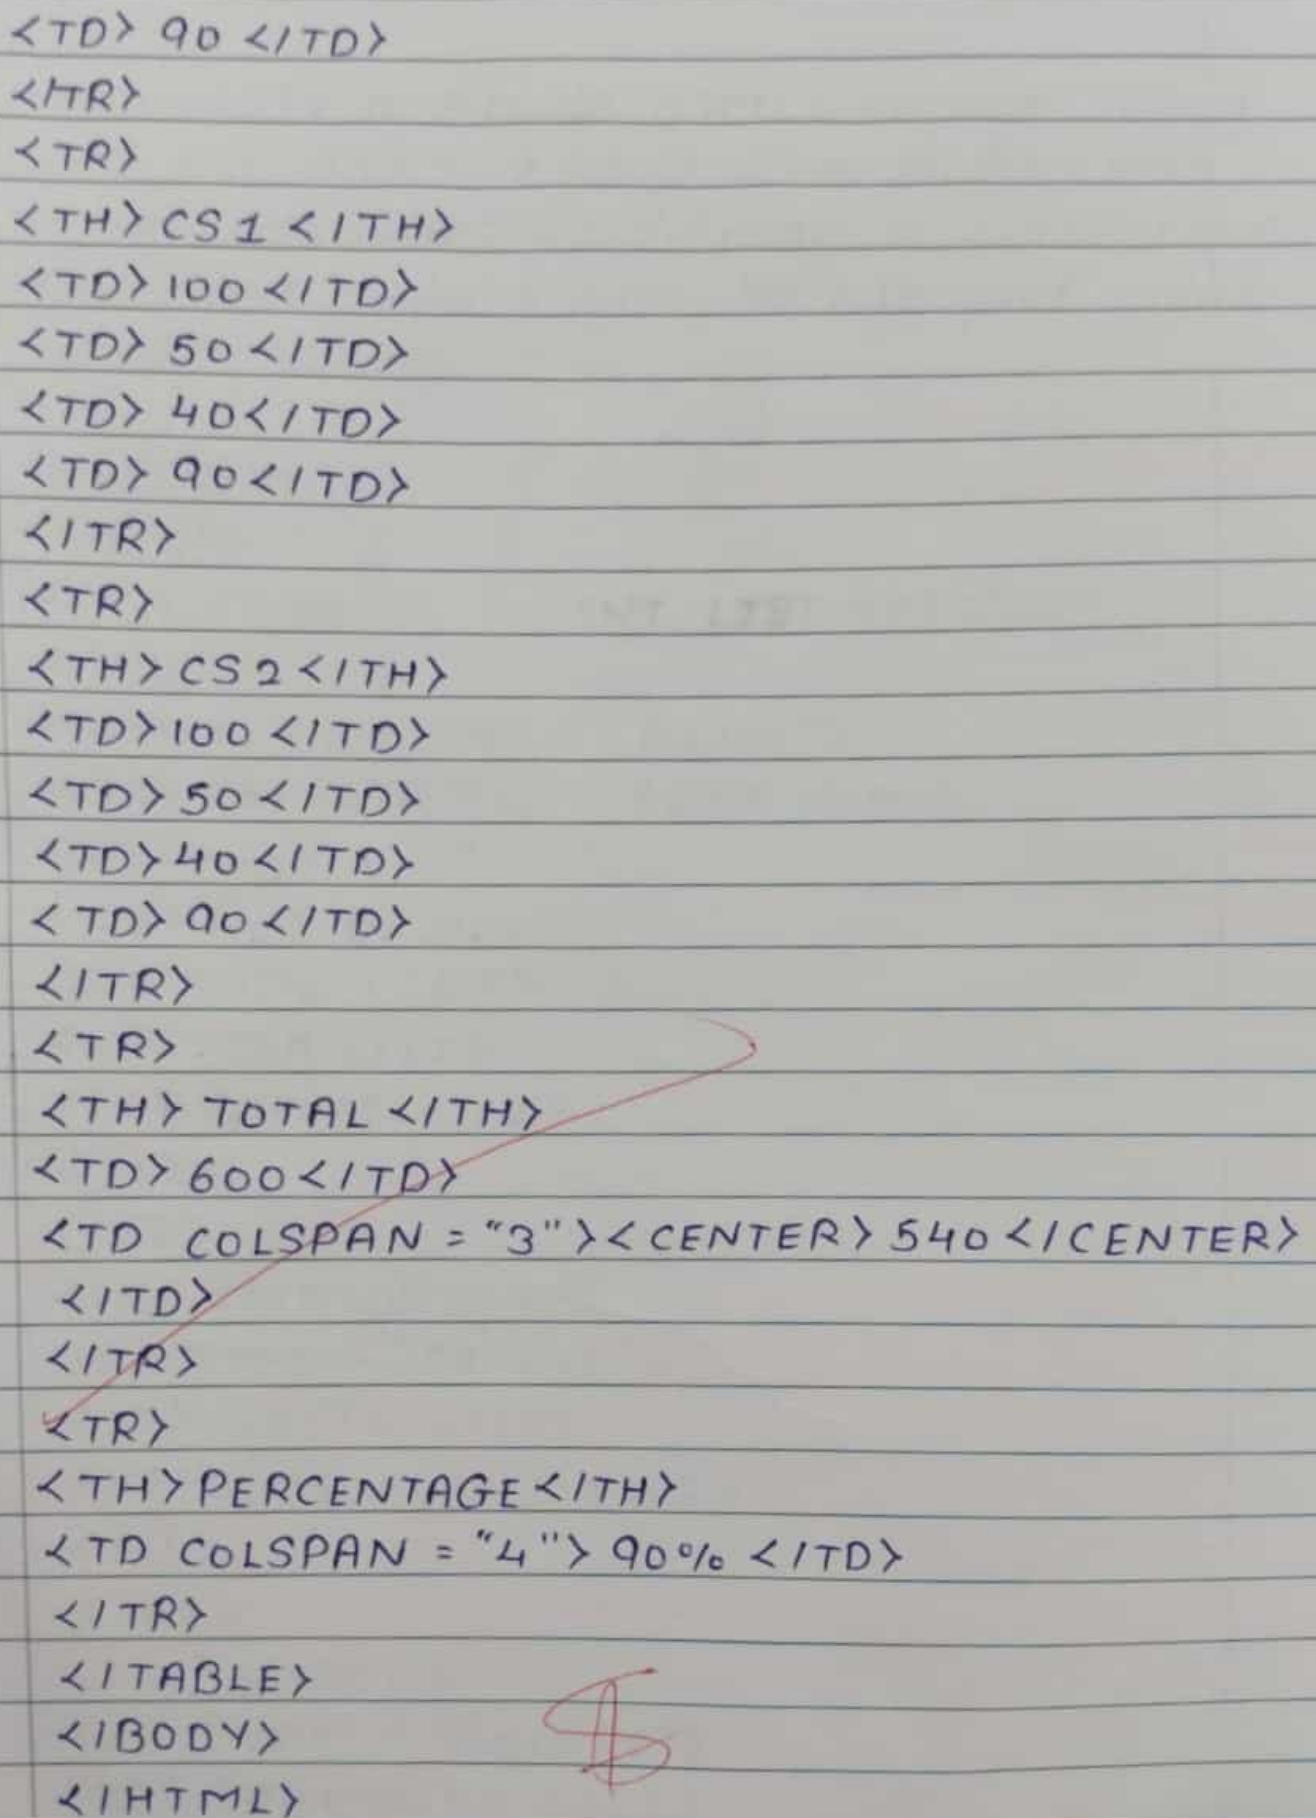 <TD> 90 </TD>
</TR>
<TR>
<TH> CS 1 </TH>
<TD> 100 </TD>
<TD> 50 </TD>
<TD> 40 </TD>
<TD> 90 </TD>
</TR>
<TR>
<TH> CS 2 </TH>
<TD> 100 </TD>
<TD> 50 </TD>
<TD> 40 </TD>
<TD> 90 </TD>
</TR>
<TR>
<TH> TOTAL </TH>
<TD> 600 </TD>
<TD COLSPAN = "3"> <CENTER> 540 </CENTER>
</TD>
</TR>
<TR>
<TH> PERCENTAGE </TH>
<TD COLSPAN = "4"> 90% </TD>
</TR>
</TABLE>
</BODY>
</HTML>